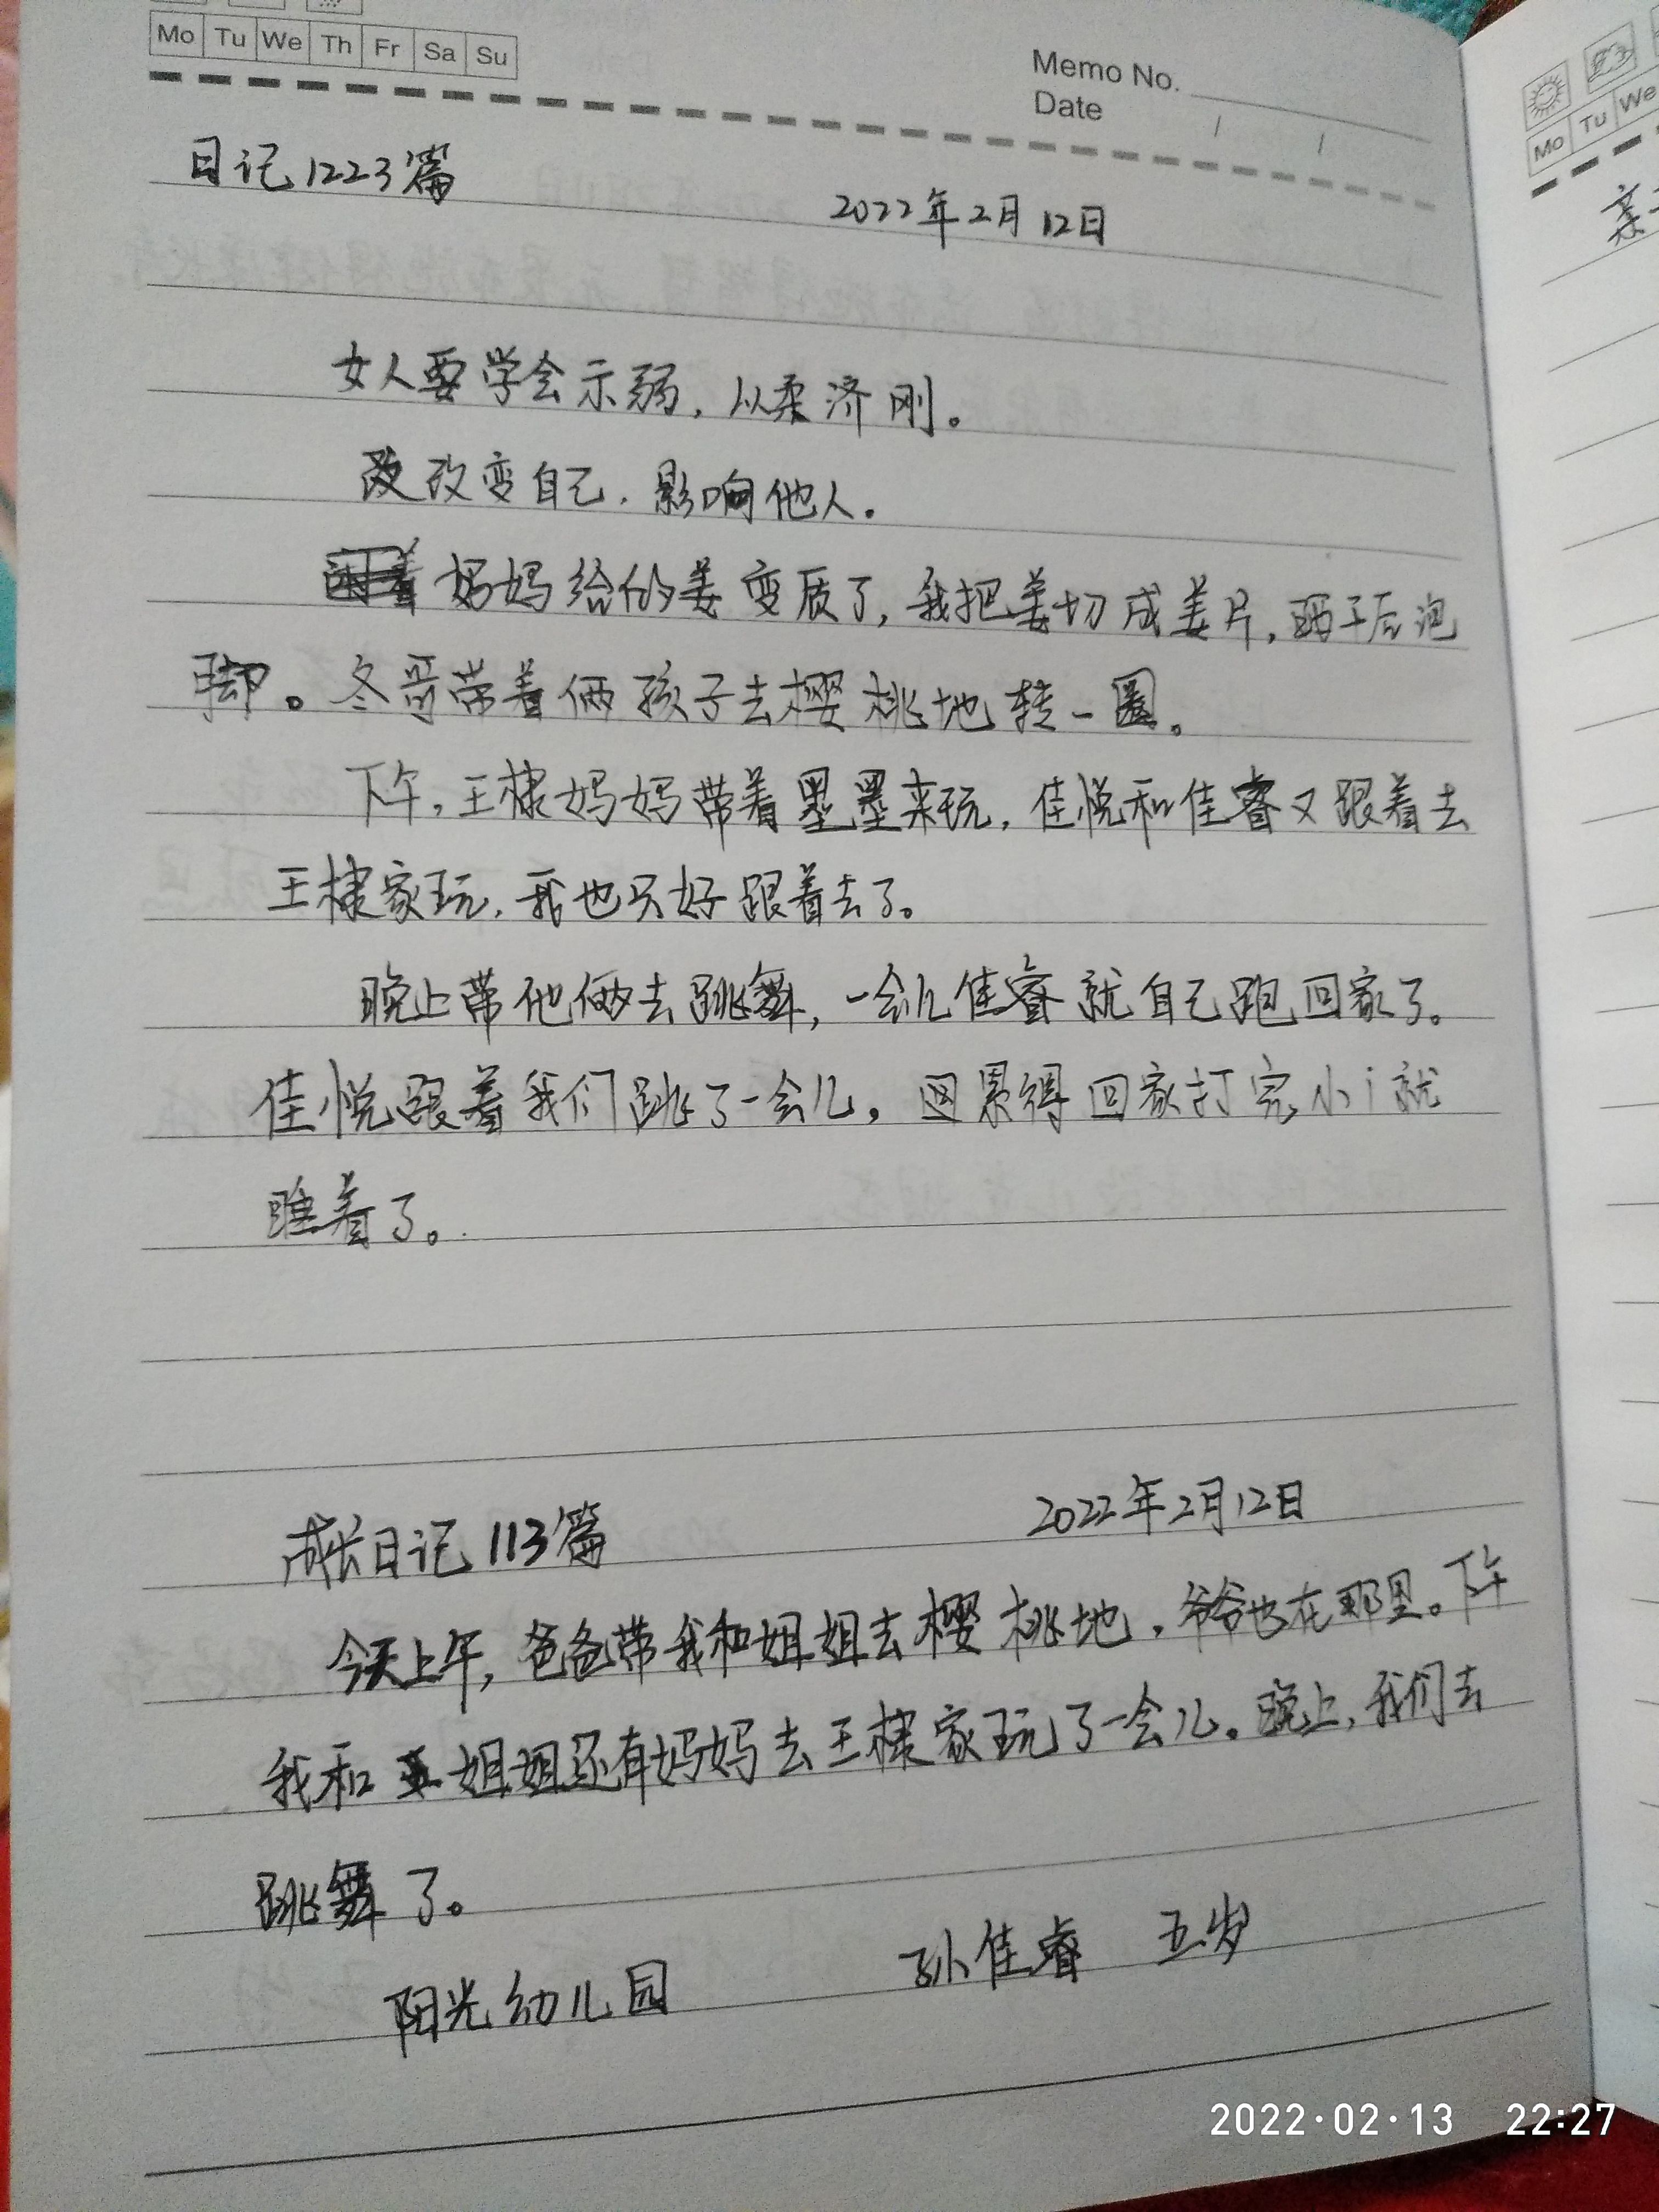 Mo Tu We Th Fr Sa Su
Memo No.
Date / /
日记1223篇
2022年2月12日
女人要学会示弱，以柔济刚。
改变自己，影响他人。
妈妈给的姜变质了，我把姜切成姜片，晒干后泡
脚。冬哥带着俩孩子去樱桃地转一圈。
下午，王棣妈妈带着墨墨来玩，佳悦和佳睿又跟着去
王棣家玩，我也只好跟着去了。
晚上带他俩去跳舞，一会儿佳睿就自己跑回家了。
佳悦跟着我们跳了一会儿，累得回家打完小i就
睡着了。
成长日记113篇
2022年2月12日
今天上午，爸爸带我和姐姐去樱桃地，爷爷也在那里。下午
我和姐姐还有妈妈去王棣家玩了一会儿。晚上，我们去
跳舞了。
阳光幼儿园 孙佳睿 五岁
2022·02·13 22:27
Mo Tu We
亲